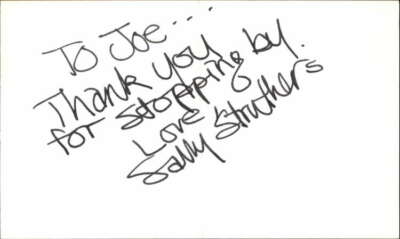 To Joe...
Thank you
for stopping by.
Love
Sally Struthers